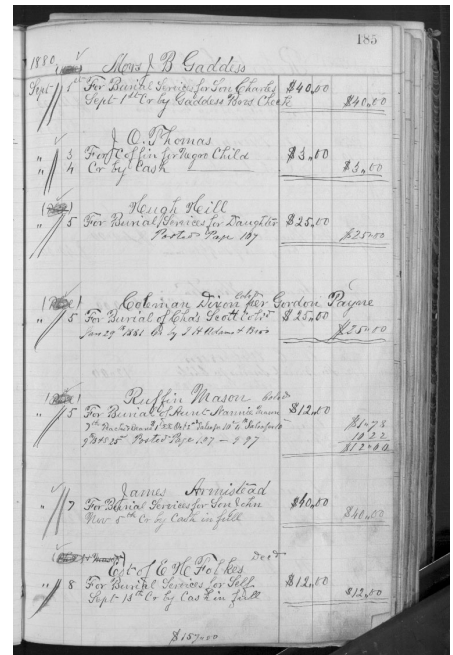 185
1880
Mrs J B Gaddess
Sept 1st For Burial Services for Son Charles $40.00
Sept 1st Cr by Gaddess Bros Check $40.00
J. O. Thomas
" 3 For Coffin for Negro Child $3.00
" 4 Cr by Cash $3.00
Hugh Hill
" 5 For Burial Services for Daughter $25.00
Posted Page 107 $25.00
Coleman Dixon Cold per Gordon Payne
" 5 For Burial of Chas Scott Cold $25.00
Jan 29th 1881 Cr by J H Adams & Bros $25.00
Ruffin Mason Cold
" 5 For Burial of Aunt Nannie $12.00
$1.78
10.22
Posted Page 187
$12.00
James Armistead
" 7 For Burial Services for Son John $40.00
Nov. 5th Cr by Cash in full $40.00
Est of E H Folkes Decd
" 8 For Burial Services for Self $12.00
Sept 15th Cr by Cash in full $12.00
$157.00